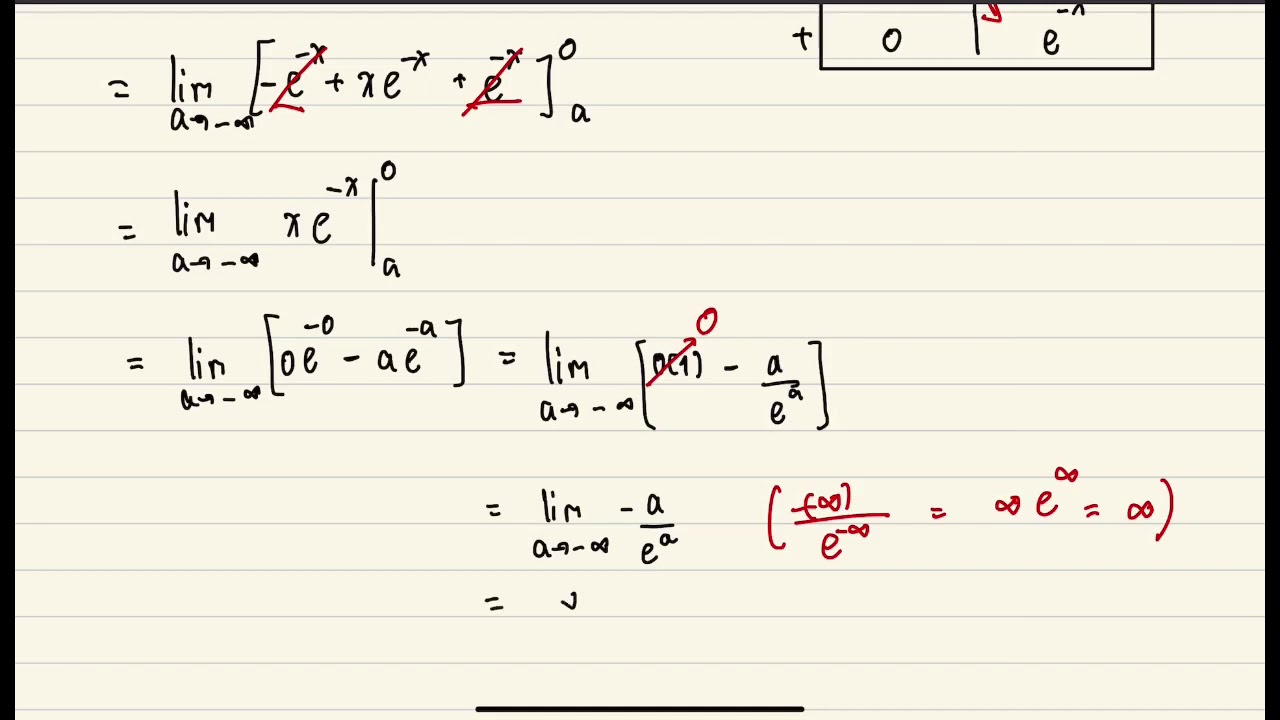 e^{-x}
+ 0 e^{-x}
= lim_{a→-∞} [-e^{-x} + xe^{-x} + e^{-x}]_a^0
= lim_{a→-∞} xe^{-x} |_a^0
= lim_{a→-∞} [0e^{-0} - ae^{-a}] = lim_{a→-∞} [0(1) - a/e^a] 0
= lim_{a→-∞} -a/e^a (-(∞)/e^{-∞} = ∞e^∞ = ∞)
=